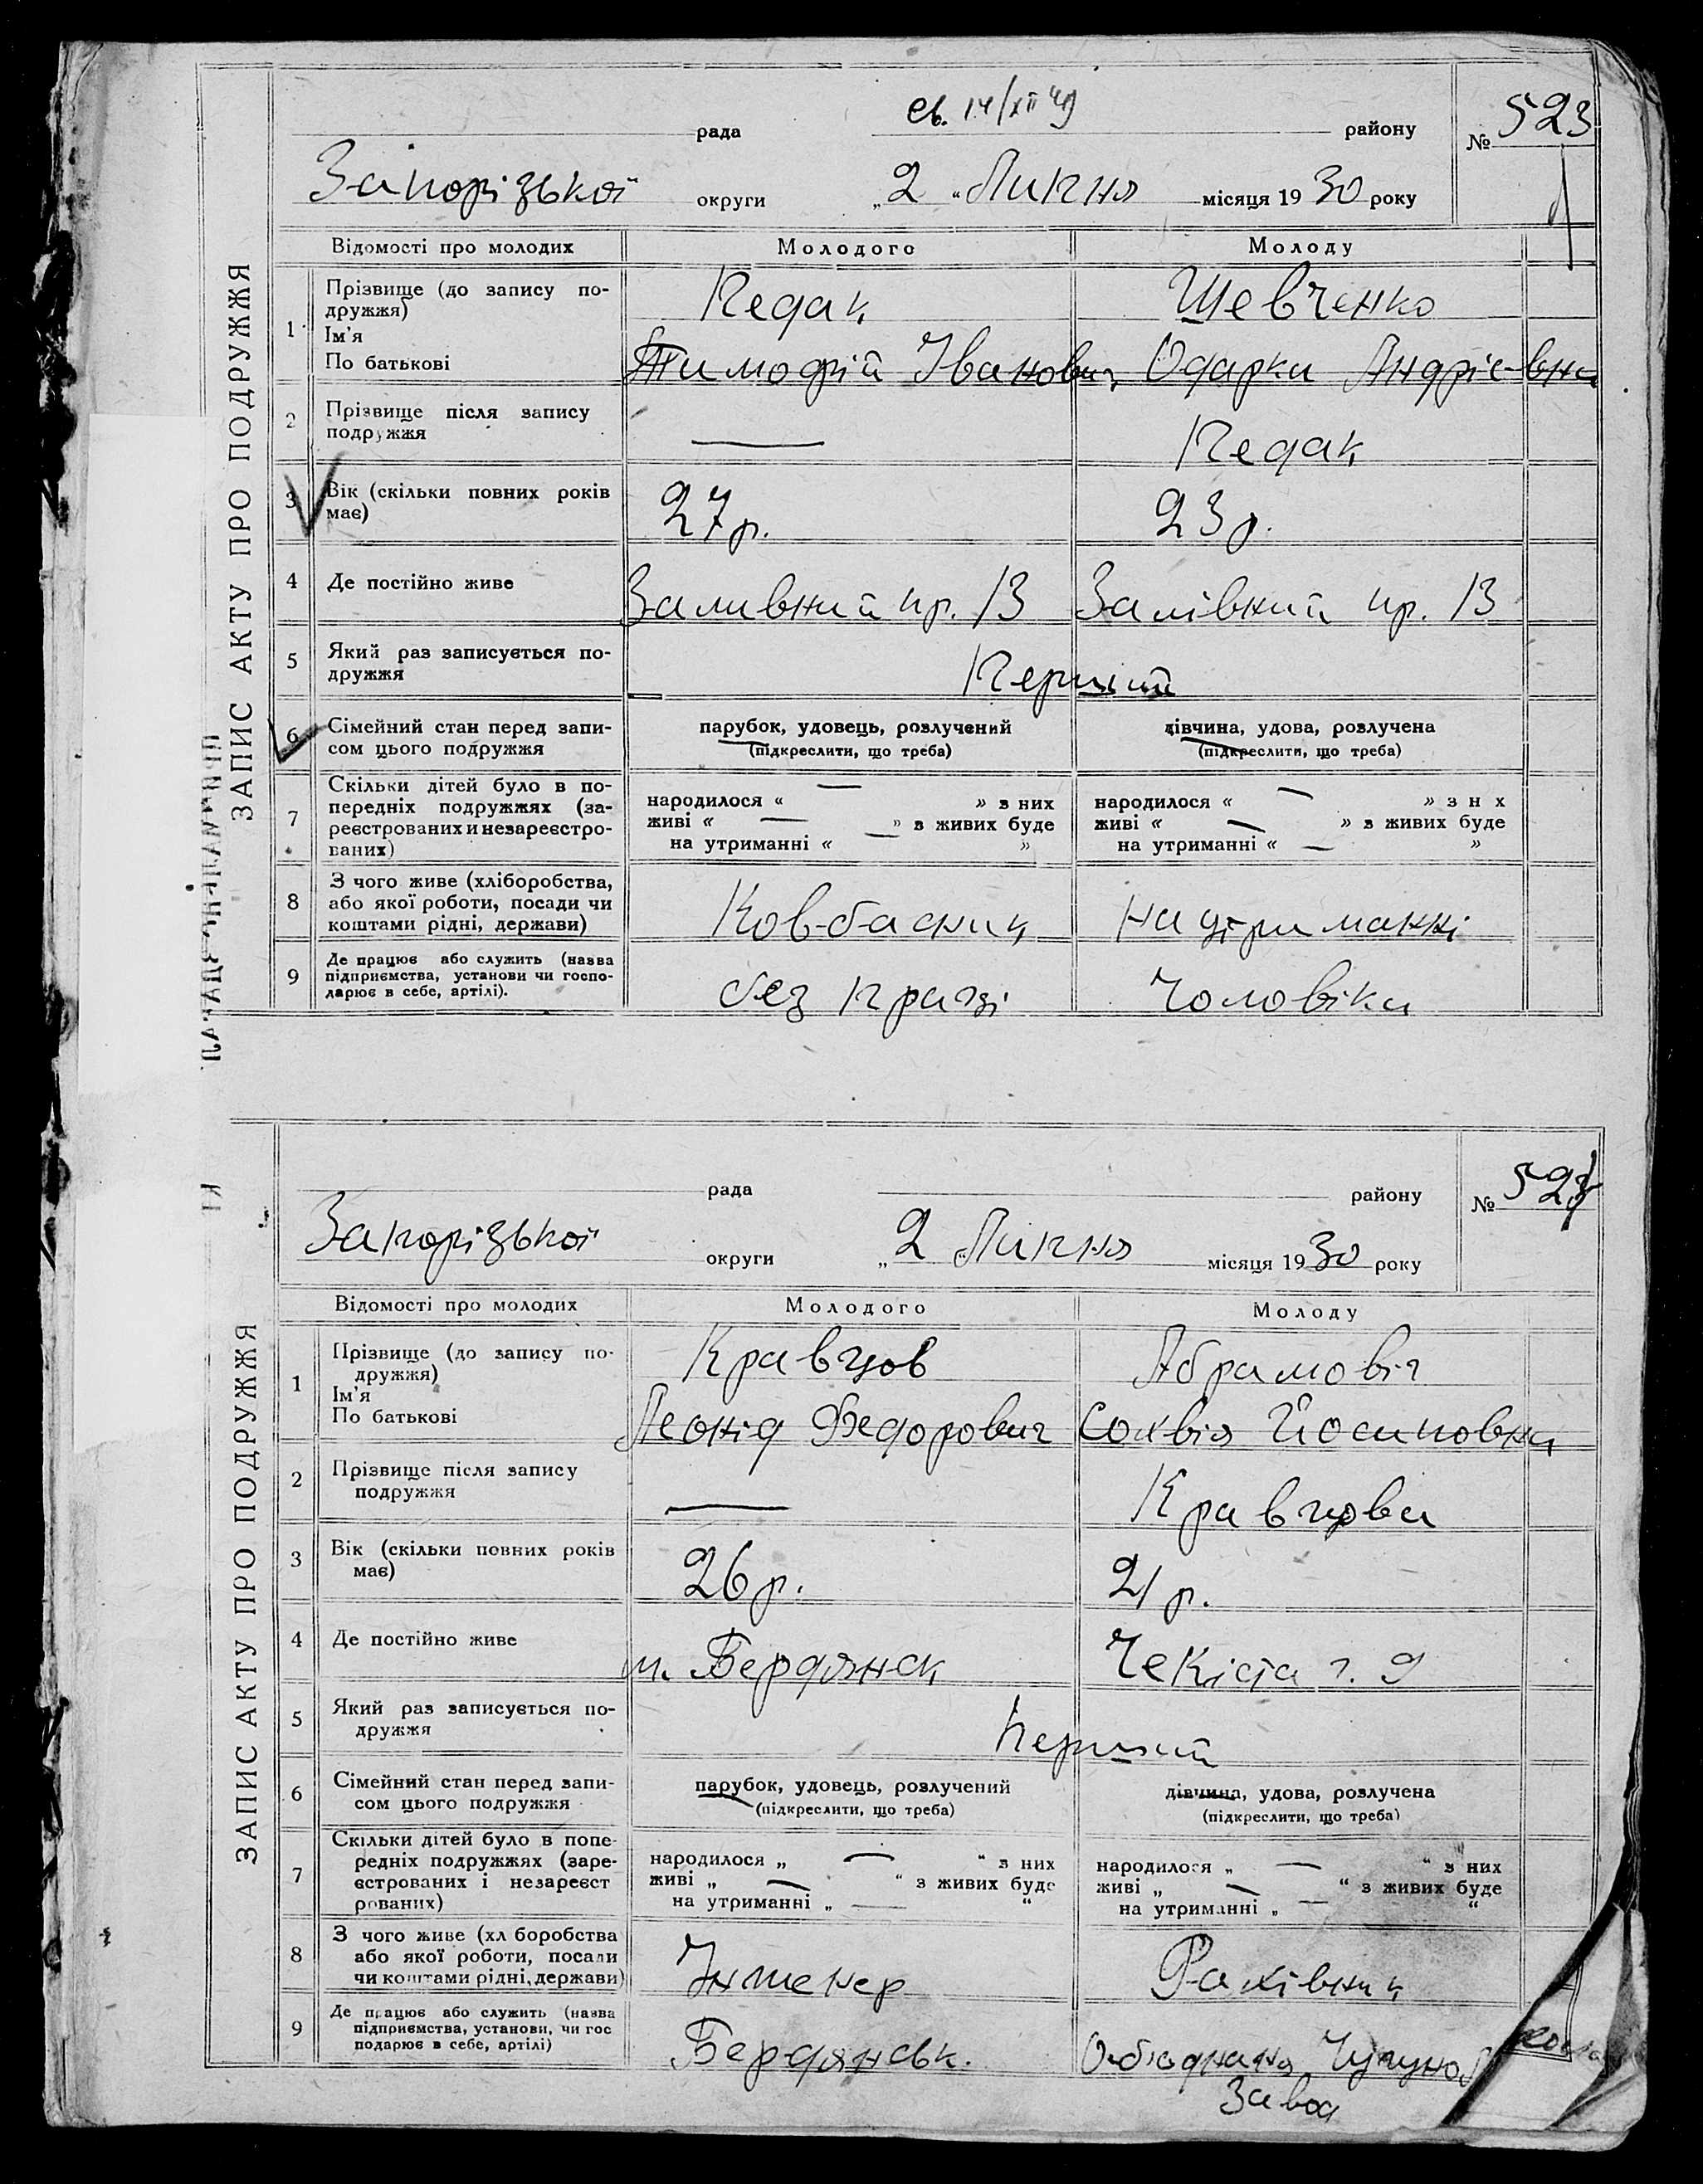 ЗАПИС АКТУ ПРО ПОДРУЖЖЯ
св. 14/XII 49
рада району № 523
Запорізької округи „2“ Липня місяця 1930 року
Відомості про молодих Молодого Молоду
1 Прізвище (до запису по- Педак Шевченко
дружжя)
Ім'я
По батькові Тимофій Іванович Одарка Андрієвна
2 Прізвище після запису — Педак
подружжя
3 Вік (скільки повних років 27 р. 23 р.
має)
4 Де постійно живе Заливний пр. 13 Залівний пр. 13
5 Який раз записується по- Перший
дружжя
6 Сімейний стан перед запи- парубок, удовець, розлучений дівчина, удова, розлучена
сом цього подружжя (підкреслити, що треба) (підкреслити, що треба)
7 Скільки дітей було в по- народилося « — » з них народилося « — » з н х
передніх подружжях (за- живі « — » з живих буде живі « — » з живих буде
реєстрованих и незареєстро- на утриманні « — » на утриманні « — »
ваних)
8 З чого живе (хліборобства, Ковбасник на утриманні
або якої роботи, посади чи
коштами рідні, держави)
9 Де працює або служить (назва без праці чоловіка
підприємства, установи чи госпо-
дарює в себе, артілі).
ЗАПИС АКТУ ПРО ПОДРУЖЖЯ
рада району № 524
Запорізької округи „2 Липня місяця 1930 року
Відомості про молодих Молодого Молоду
1 Прізвище (до запису по- Кравцов Абрамовіч
дружжя)
Ім'я
По батькові Леонід Федорович Софвія Йосиповна
2 Прізвище після запису — Кравцова
подружжя
3 Вік (скільки повних років 26 р. 21 р.
має)
4 Де постійно живе м. Бердянск Чекіста г. 9
5 Який раз записується по- Перший
дружжя
6 Сімейний стан перед запи- парубок, удовець, розлучений дівчина, удова, розлучена
сом цього подружжя (підкреслити, що треба) (підкреслити, що треба)
7 Скільки дітей було в попе- народилося „ — “ з них народилося „ — “ з них
редніх подружжях (заре- живі „ — “ з живих буде живі „ — “ з живих буде
єстрованих і незареєст на утриманні „ — “ на утриманні „ — “
рованих)
8 З чого живе (хл боробства Інженер Рахівник
або якої роботи, посади
чи коштами рідні, держави)
9 Де працює або служить (назва Бердянськ. Обєднаня Чугуно
підприємства, установи, чи гос Завод
подарює в себе, артілі)